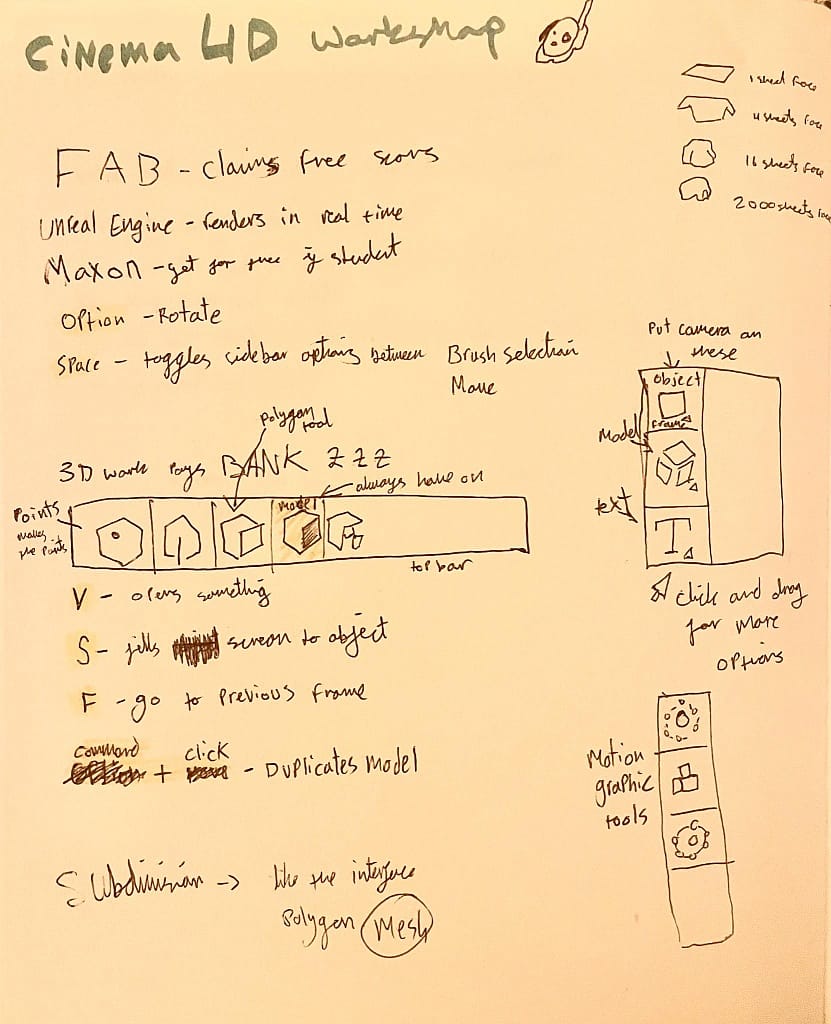 Cinema 4D Worksmap
1 sheet face
4 sheets face
16 sheets face
2000 sheets face
FAB - claims free
Unreal Engine - renders in real time
Maxon - get for free if student
Option - Rotate
Space - toggles sidebar options between Brush selection
Move
Put camera on
these
Object
frame
Model
text
T
click and drag
for more
options
Polygon
tool
3D work pays BANK ZZZ
always have on
Points
makes
the points
Model
top bar
V - opens something
S - fills screen to object
F - go to previous frame
command + click - Duplicates Model
Motion
graphic
tools
Subdivision -> like the interface
polygon Mesh